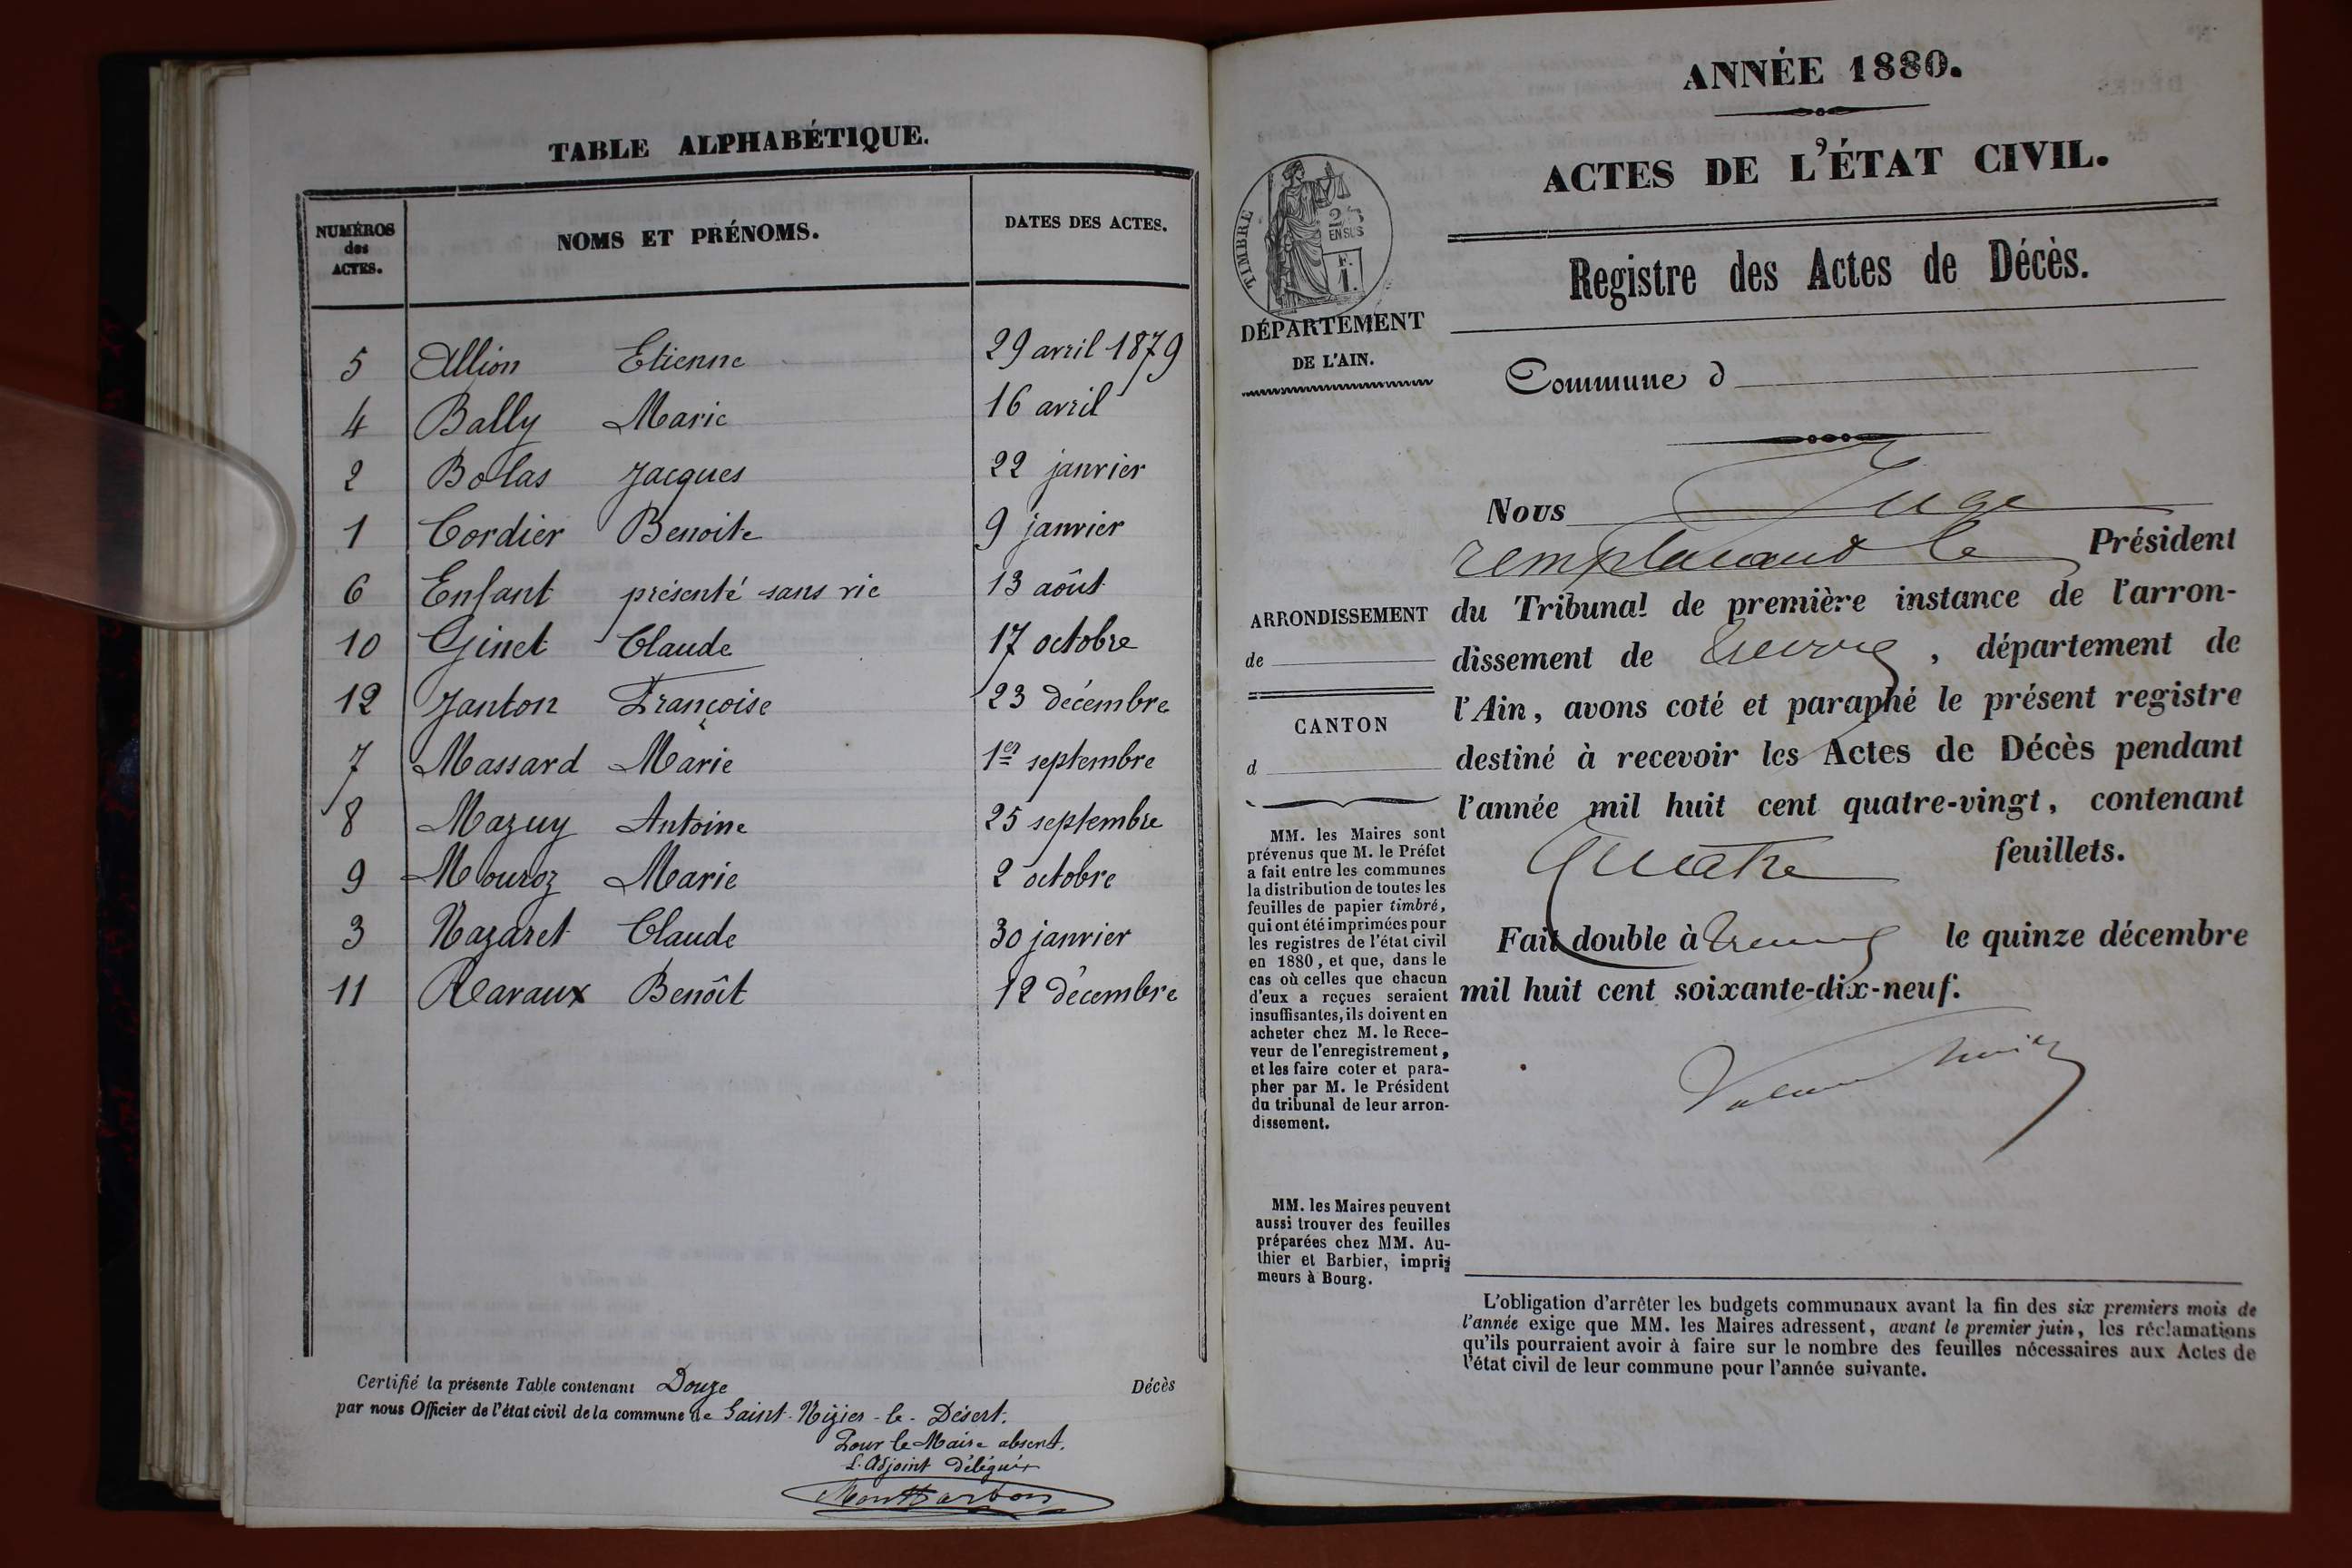 TABLE ALPHABÉTIQUE.
NUMÉROS des ACTES.
NOMS ET PRÉNOMS.
DATES DES ACTES.
5 Allion Etienne 29 avril 1879
4 Bally Marie 16 avril
2 Bolas Jacques 22 janvier
1 Cordier Benoite 9 janvier
6 Enfant présenté sans vie 13 août
10 Ginet Claude 17 octobre
12 Janton Françoise 23 décembre
7 Massard Marie 1er septembre
8 Mazuy Antoine 25 septembre
9 Mouroz Marie 2 octobre
3 Nazaret Claude 30 janvier
11 Ravaux Benoît 12 décembre
Certifié la présente Table contenant Douze Décès
par nous Officier de l'état civil de la commune de Saint-Nizier-le-Désert.
Pour le Maire absent.
L'Adjoint délégué
Montbarbon
ANNÉE 1880.
ACTES DE L'ÉTAT CIVIL.
Registre des Actes de Décès.
TIMBRE
25
EN SUS
F.
1.
DÉPARTEMENT
DE L'AIN.
Commune d
ARRONDISSEMENT
de
CANTON
d
MM. les Maires sont
prévenus que M. le Préfet
a fait entre les communes
la distribution de toutes les
feuilles de papier timbré,
qui ont été imprimées pour
les registres de l'état civil
en 1880, et que, dans le
cas où celles que chacun
d'eux a reçues seraient
insuffisantes, ils doivent en
acheter chez M. le Rece-
veur de l'enregistrement,
et les faire coter et para-
pher par M. le Président
du tribunal de leur arron-
dissement.
MM. les Maires peuvent
aussi trouver des feuilles
préparées chez MM. Au-
thier et Barbier, impri-
meurs à Bourg.
Nous Juge
remplacant le Président
du Tribunal de première instance de l'arron-
dissement de Trévoux, département de
l'Ain, avons coté et paraphé le présent registre
destiné à recevoir les Actes de Décès pendant
l'année mil huit cent quatre-vingt, contenant
Quatre feuillets.
Fait double à Trévoux le quinze décembre
mil huit cent soixante-dix-neuf.
L'obligation d'arrêter les budgets communaux avant la fin des six premiers mois de
l'année exige que MM. les Maires adressent, avant le premier juin, les réclamations
qu'ils pourraient avoir à faire sur le nombre des feuilles nécessaires aux Actes de
l'état civil de leur commune pour l'année suivante.